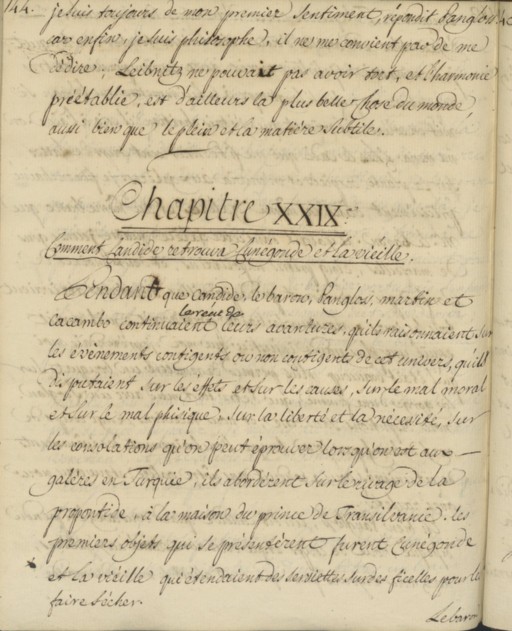 144.
je suis toujours de mon premier sentiment, répondit Panglos.
car enfin, je suis philosophe, il ne me convient pas de me
dédire, Leibnitz ne pouvait pas avoir tort, et l'harmonie
préétablie, est d'ailleurs la plus belle chose du monde,
aussi bien que le plein et la matière subtile.
Chapitre XXIX.
Comment Candide retrouva Cunégonde et la vieille.
Pendant que Candide, le baron, Panglos, martin et
cacambo continuaient leurs avantures, qu'ils raisonnaient sur
les évènements contigents ou non contigents de cet univers, qu'ils
disputaient sur les effets et sur les causes, sur le mal moral
et sur le mal phisique, sur la liberté et la nécesité, sur
les consolations qu'on peut éprouver lorsqu'on est aux
galères en Turquie, ils abordèrent sur le rivage de la
propontide, à la maison du prince de Transilvanie. les
premiers objets qui se présentèrent furent Cunégonde
et la vieille qui étendaient des serviettes sur des ficelles pour les
faire sécher.
Le baron